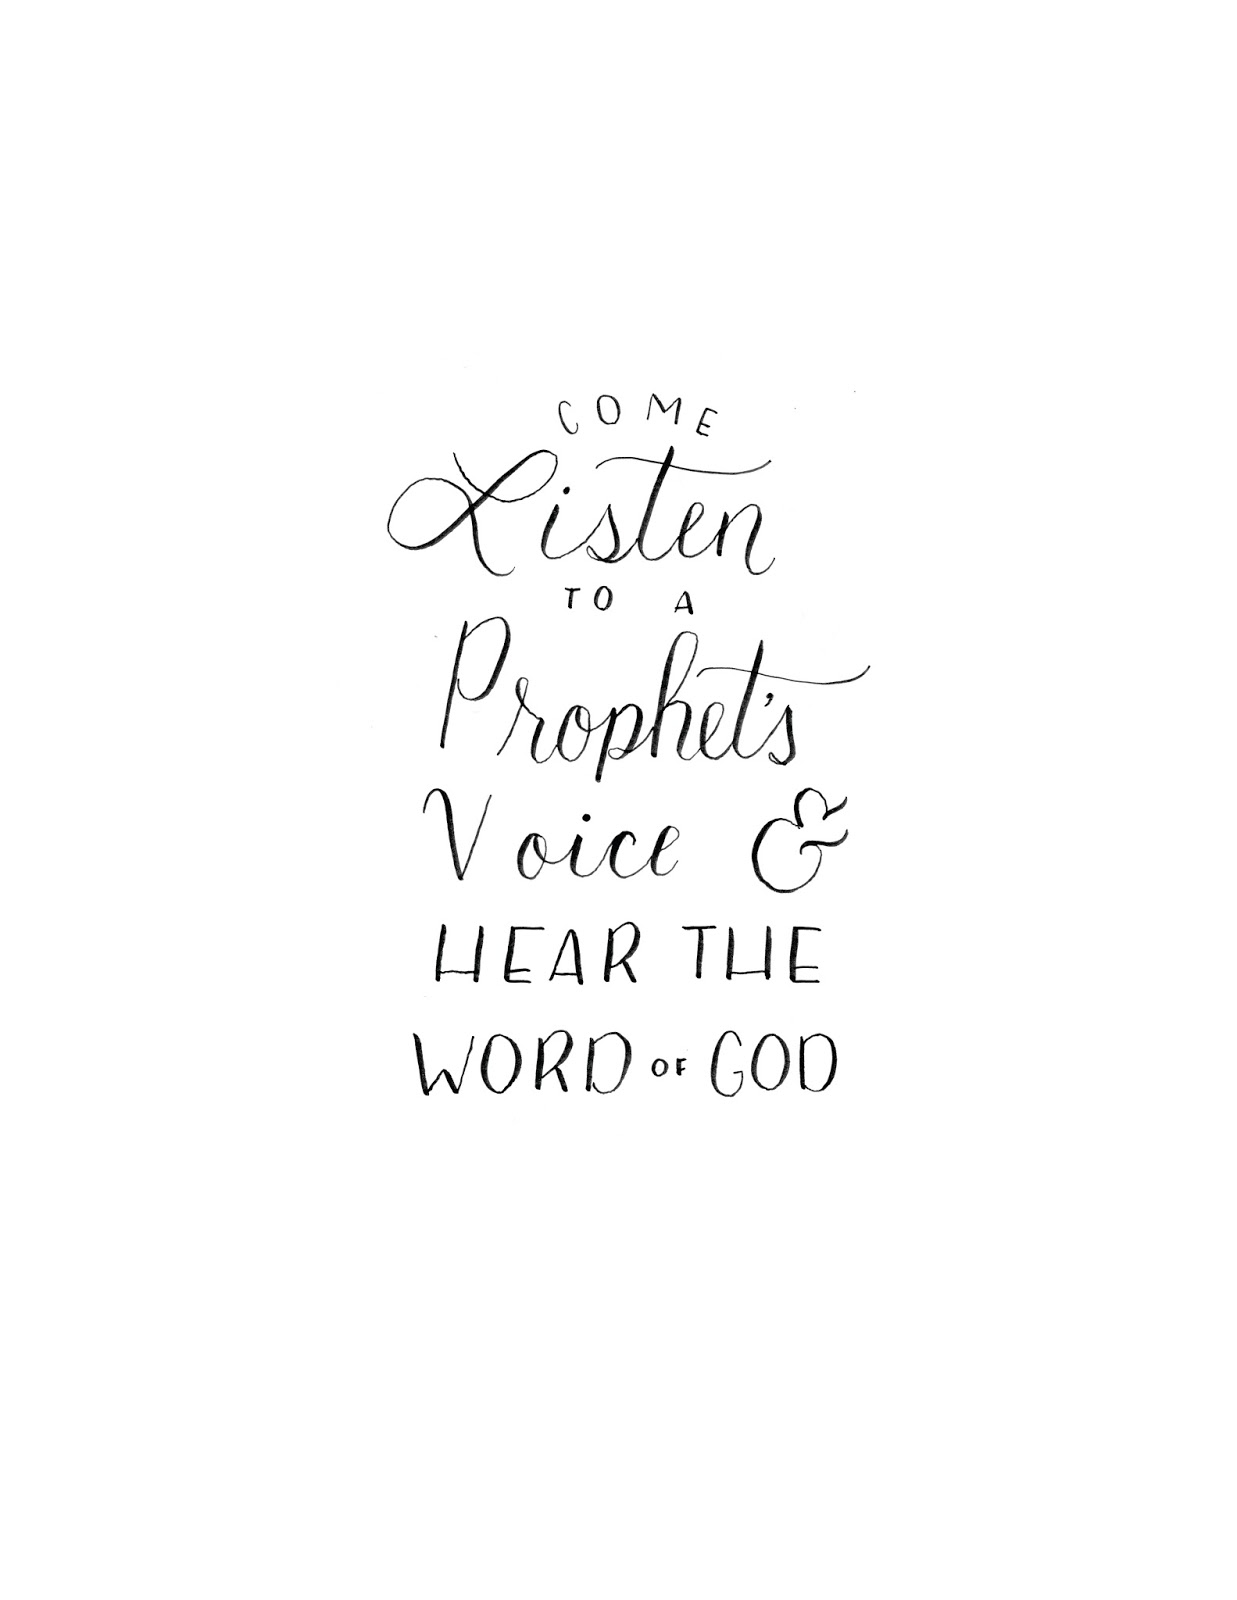 COME
Listen
TO A
Prophet's
Voice &
HEAR THE
WORD OF GOD